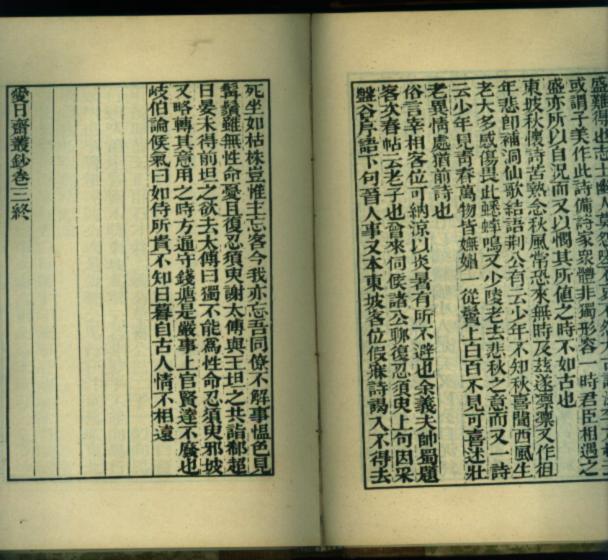 盛難得也志士幽人
或謂子美作此詩備詩家衆體非獨形容一時君臣相遇之
盛亦所以自況而又以憫其所値之時不如古也
東坡秋懷詩苦熱念秋風常恐來無時及茲遂凛凛又作徂
年悲卽補洞仙歌結語荆公有云少年不知秋喜聞西風生
老大多感傷畏此蟋蟀鳴又少陵老去悲秋之意而又一詩
云少年見靑春萬物皆嫵媚一從鬢上白百不見可喜迷壯
老異情處猶前詩也
俗言宰相客位可納涼以炎暑有所不避也余義夫帥蜀題
客次春帖云老子也曾來伺候諸公聊復忍須臾上句因采
盤谷序語下句晉人事又本東坡客位假寐詩謁入不得去
死坐如枯株豈惟主忘客今我亦忘吾同僚不解事慍色見
髯鬚雖無性命憂且復忍須臾謝太傅與王坦之共詣郗超
日晏未得前坦之欲去太傅曰獨不能爲性命忍須臾邪坡
又略轉其意用之時方通守錢塘是嚴事上官賢達不廢也
岐伯論候氣曰如侍所貴不知日暮自古人情不相遠
愛日齋叢鈔卷三終